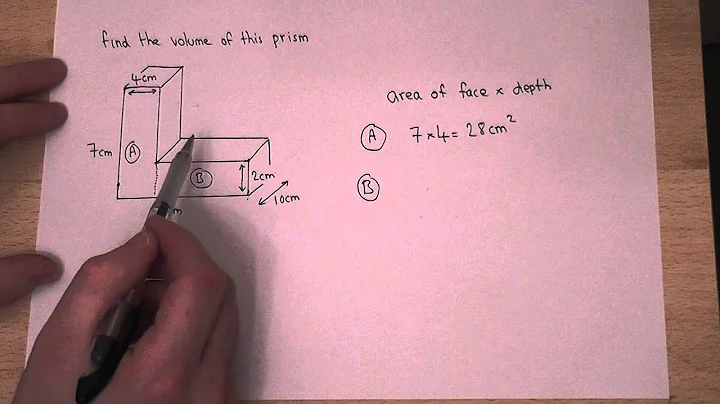 find the volume of this prism
4cm
area of face × depth
7cm
A
A 7×4=28cm²
B
2cm
B
10cm
m